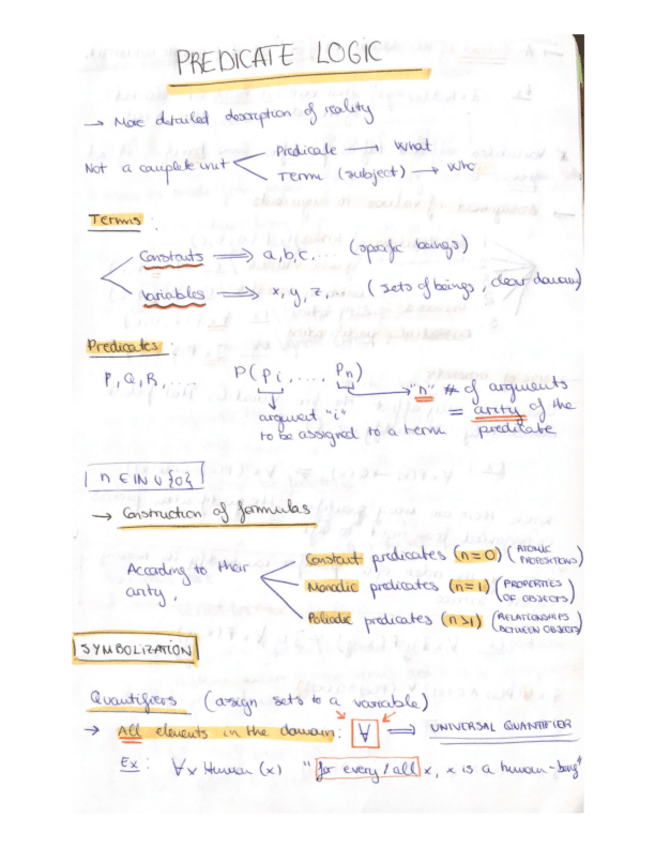 PREDICATE LOGIC
→ More detailed description of reality
Not a complete unit
Predicate → What
Term (subject) → Who
Terms:
Constants ⟹ a, b, c, ... (specific beings)
Variables ⟹ x, y, z, ... (sets of beings, clear domain)
Predicates:
P, Q, R, ....
P(P i, .... Pn)
argument "i"
to be assigned to a term
"n" # of arguments
= arity of the
predicate
n ∈ IN ∪ {0}
→ Construction of formulas
According to their
arity,
Constant predicates (n=0) (ATOMIC PROPOSITIONS)
Monadic predicates (n=1) (PROPERTIES OF OBJECTS)
Poliadic predicates (n>1) (RELATIONSHIPS BETWEEN OBJECTS)
SYMBOLIZATION
Quantifiers (assign sets to a variable)
→ All elements in the domain: ∀ ⟹ UNIVERSAL QUANTIFIER
Ex: ∀x Human (x) "for every/all x, x is a human-being"